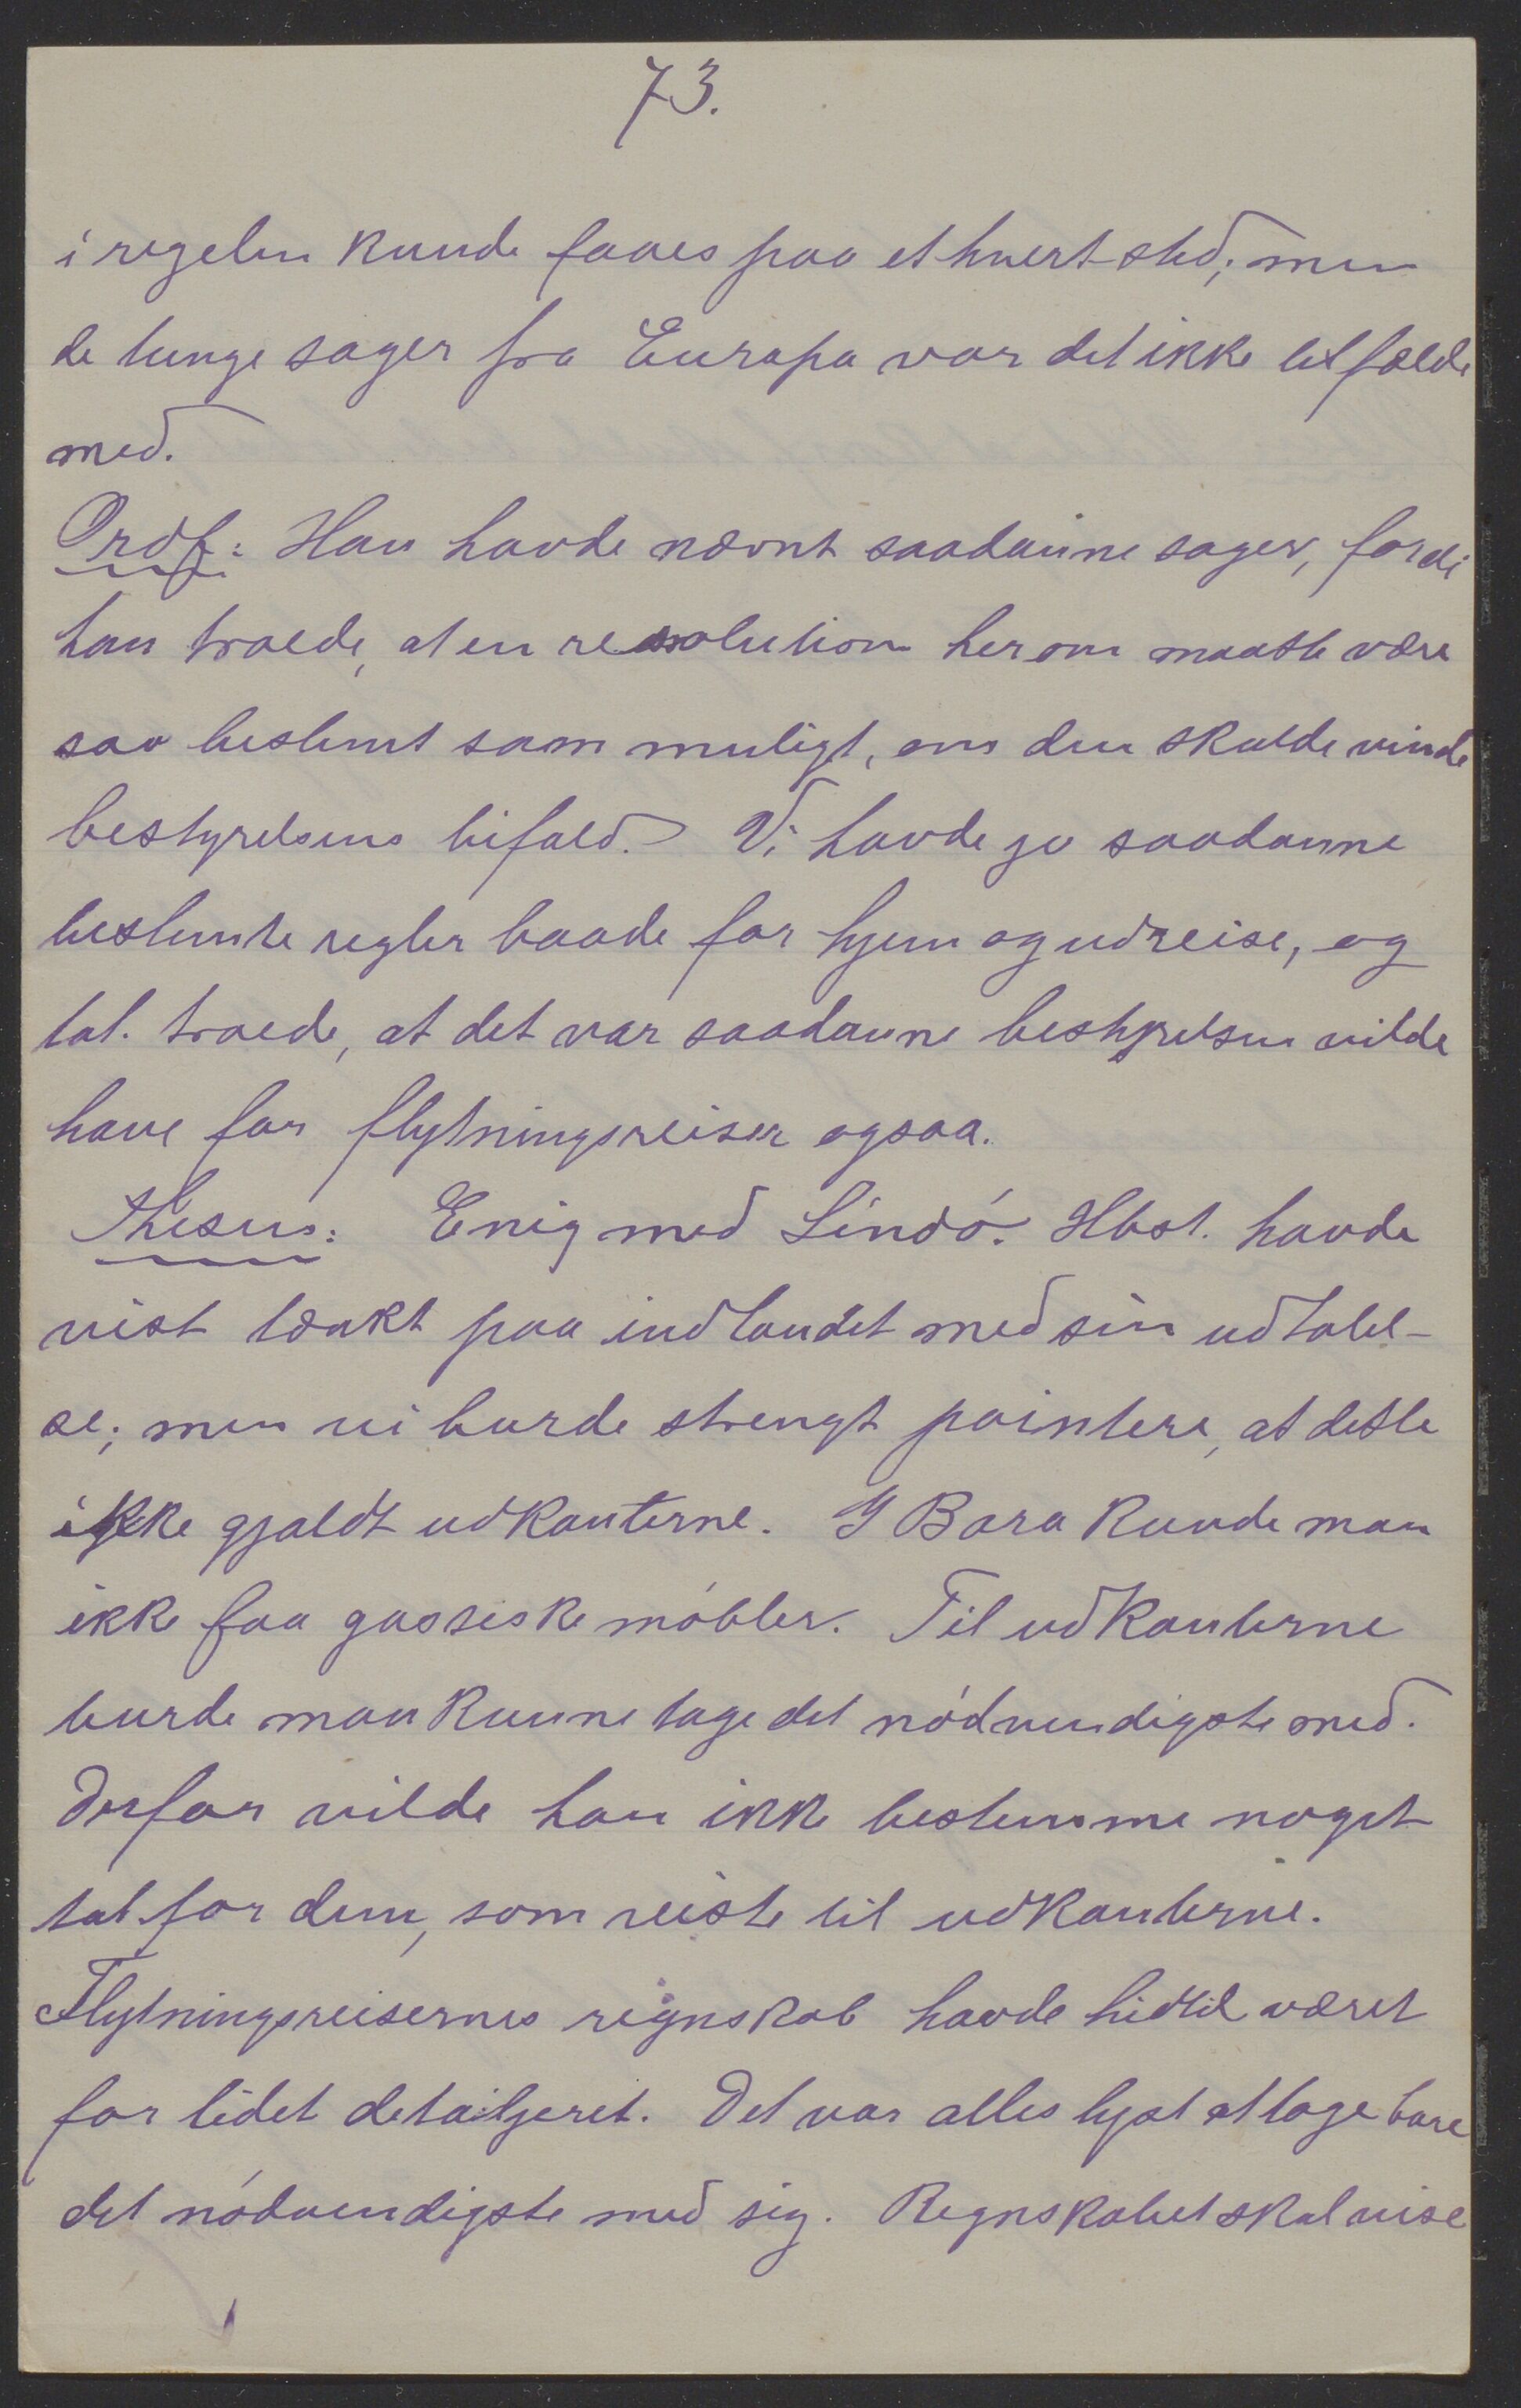 73.
i regelen kunde faaes paa ethvert sted; men
de tunge sager fra Europa var det ikke tilfælde
med.
Ordf: Han havde nævnt saadanne sager, fordi
han troede, at en resolution herom maatte være
saa bestemt som muligt, om den skulde vinde
bestyrelsens bifald. Vi havde jo saadanne
bestemte regler baade for hjem og udreise, og
tal. troede, at det var saadanne bestyrelsen vilde
have for flytningsreiser ogsaa.
Thesen: Enig med Lindó. Hbst. havde
vist tænkt paa indlandet med sin udtalel-
se; men vi burde strengt pointere, at dette
ikke gjaldt udkanterne. I Bara kunde man
ikke faa gassiske móbler. Til udkanterne
burde man kunne tage det nódvendigste med.
Derfor vilde han ikke bestemme noget
tal for dem, som reiste til udkanterne.
Flytningsreisernes regnskab havde hidtil været
for lidet detaljeret. Det var alles lyst at tage bare
det nódvendigste med sig. Regnskabet skal vise